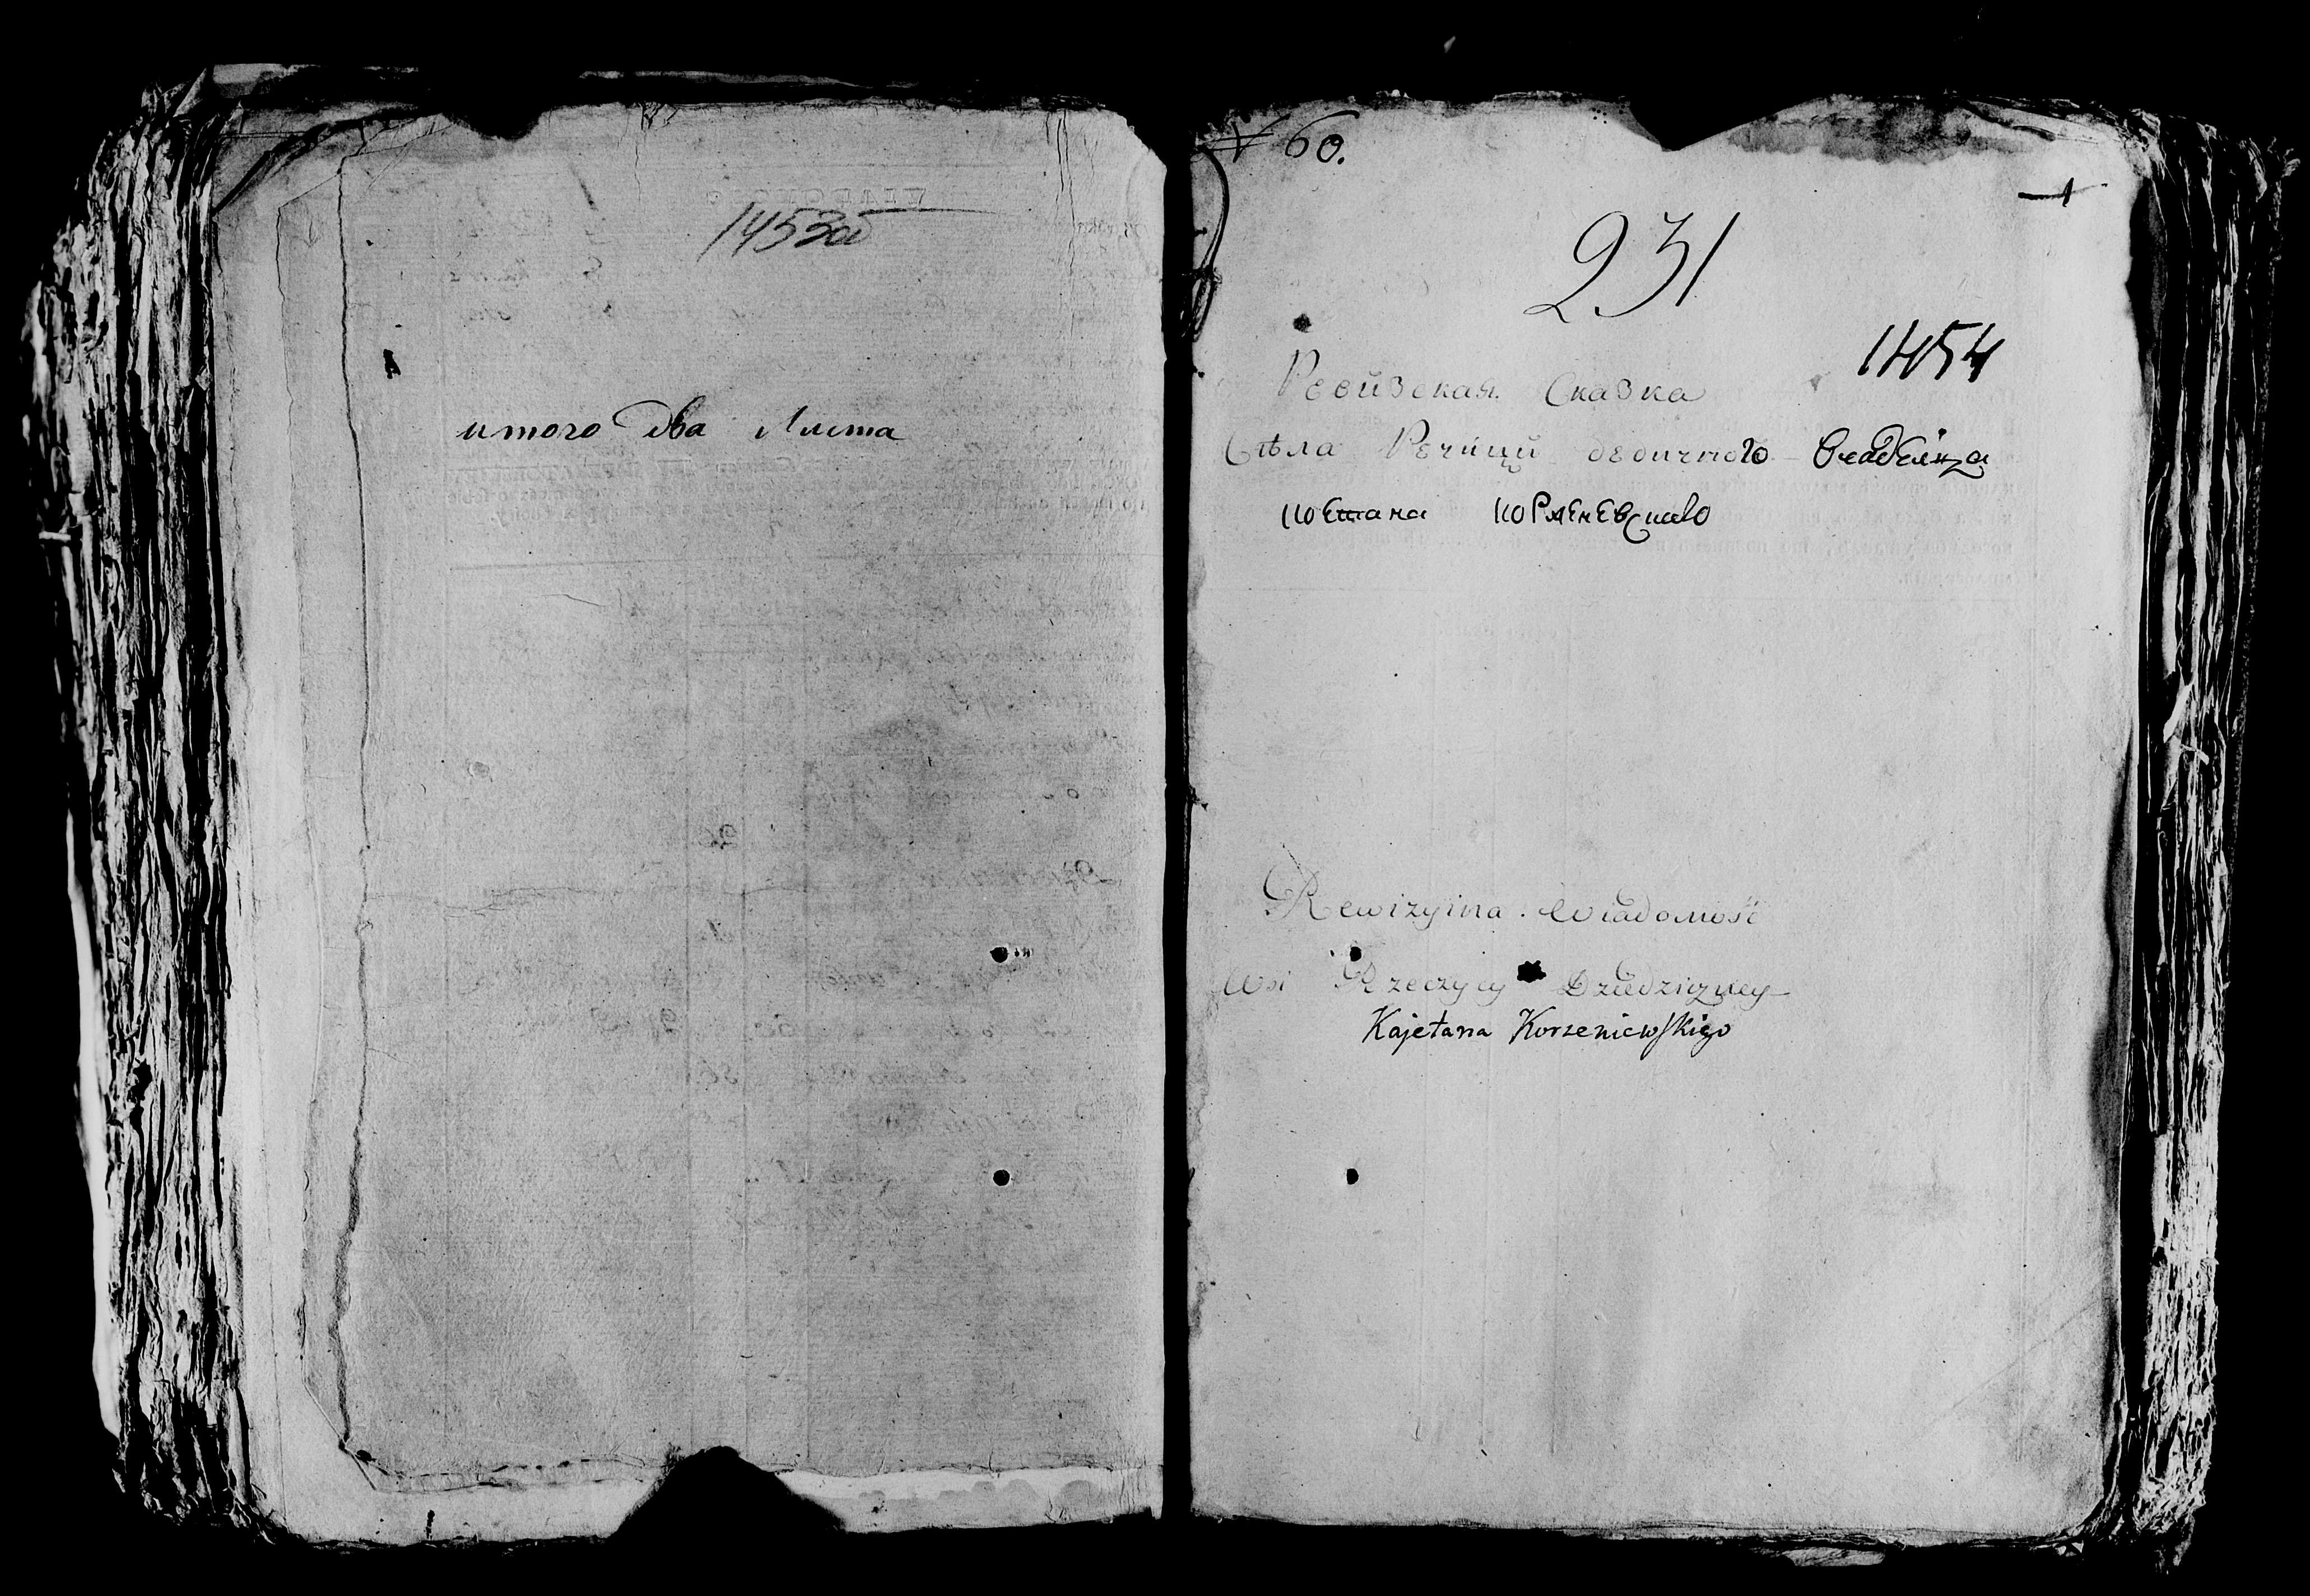 1453об
итого два Листа
№ 60.
1
231
1454
Ревизская Сказка
Сѣла Речицы дедичного Владелца
коетана корженевскаго
Rewizyina Wiadomość
Wsi Rzeczycy Dziedziczney
Kajetana Korzeniewskiego